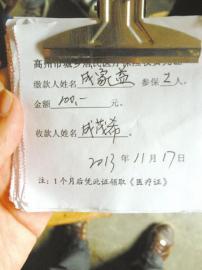 高州市城乡居民医疗保险收费凭证
缴款人姓名 成家益 参保 2 人。
金额 100.- 元。
收款人姓名 成茂希
2013 年 11 月 17 日
注：1个月后凭此证领取《医疗证》